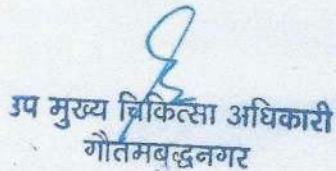 उप मुख्य चिकित्सा अधिकारी
गौतमबुद्धनगर